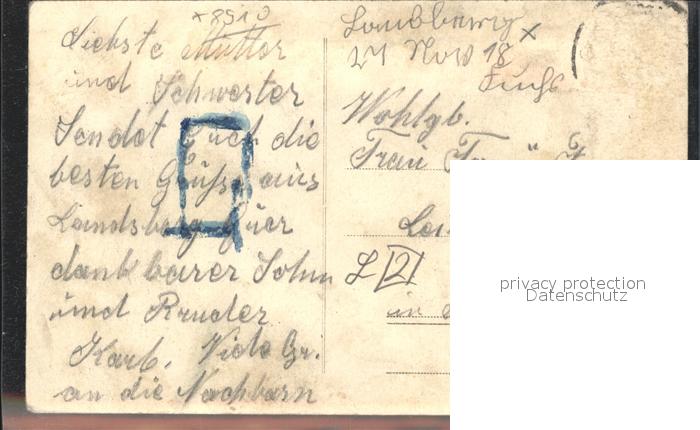 x 8910
Liebste Mutter
und Schwester
Sendet Euch die
besten Grüße aus
Landsberg Euer
dankbarer Sohn
und Bruder
Karl. Viele Gr.
an die Nachbarn
Landsberg x
24 Nov 18
Wohlgb.
Frau
L 2
in
privacy protection
Datenschutz